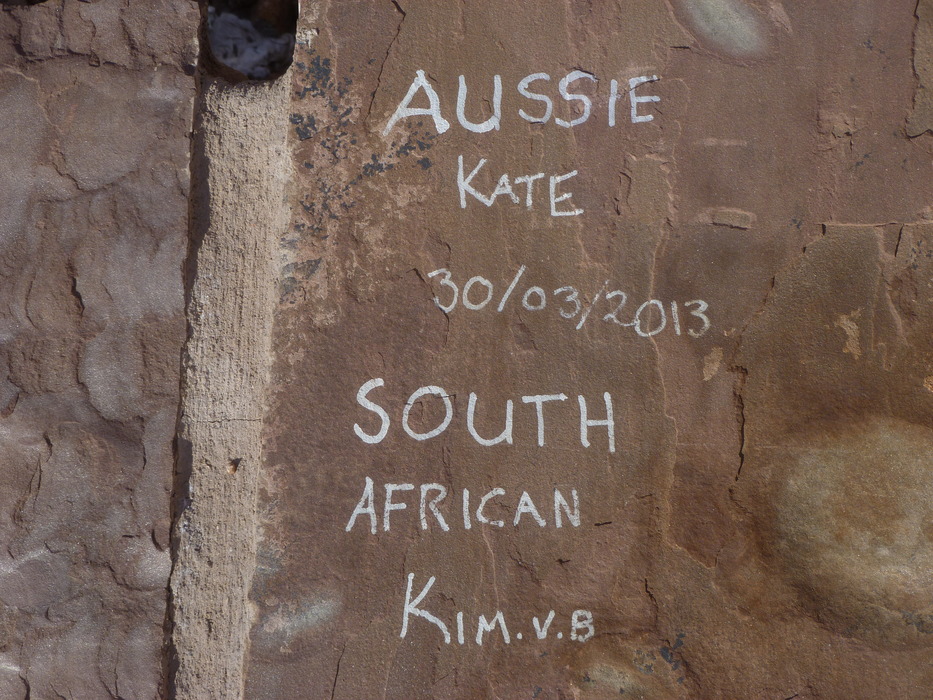 AUSSIE
KATE
30/03/2013
SOUTH
AFRICAN
KIM.V.B